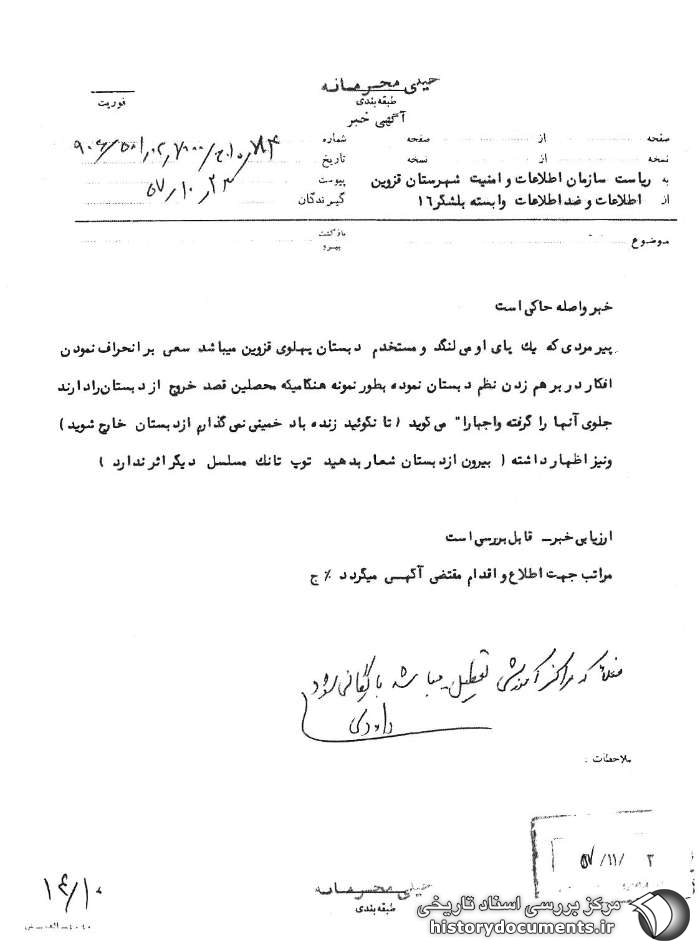 خیلی محرمانه
طبقه‌بندی
فوریت
آگهی خبر
صفحه از صفحه شماره
نسخه از نسخه تاریخ ۵۷/۱۰/۲۳
به ریاست سازمان اطلاعات و امنیت شهرستان قزوین پیوست
از اطلاعات و ضد اطلاعات وابسته بلشگر ۱۶ گیرندگان
موضوع بازگشت
پیرو
خبر واصله حاکی است
پیر مردی که یك پای او می لنگد و مستخدم دبستان پهلوی قزوین میباشد سعی بر انحراف نمودن
افکار در بر هم زدن نظم دبستان نموده بطور نمونه هنگامیکه محصلین قصد خروج از دبستان را دارند
جلوی آنها را گرفته و اجبارا" می گوید ( تا نگوئید زنده باد خمینی نمی گذارم از دبستان خارج شوید )
و نیز اظهار داشته ( بیرون از دبستان شعار بدهید توپ تانك مسلسل دیگر اثر ندارد )
ارزیابی خبر ـ قابل بررسی است
مراتب جهت اطلاع و اقدام مقتضی آگهی میگردد ٪ ج
فعلاً که مراکز آموزشی تعطیل میباشد بایگانی شود
داودی
ملاحظات :
۵۷/۱۱/ ۲
خیلی محرمانه
طبقه‌بندی
۱۴/۱۰
مرکز بررسی اسناد تاریخی
historydocuments.ir